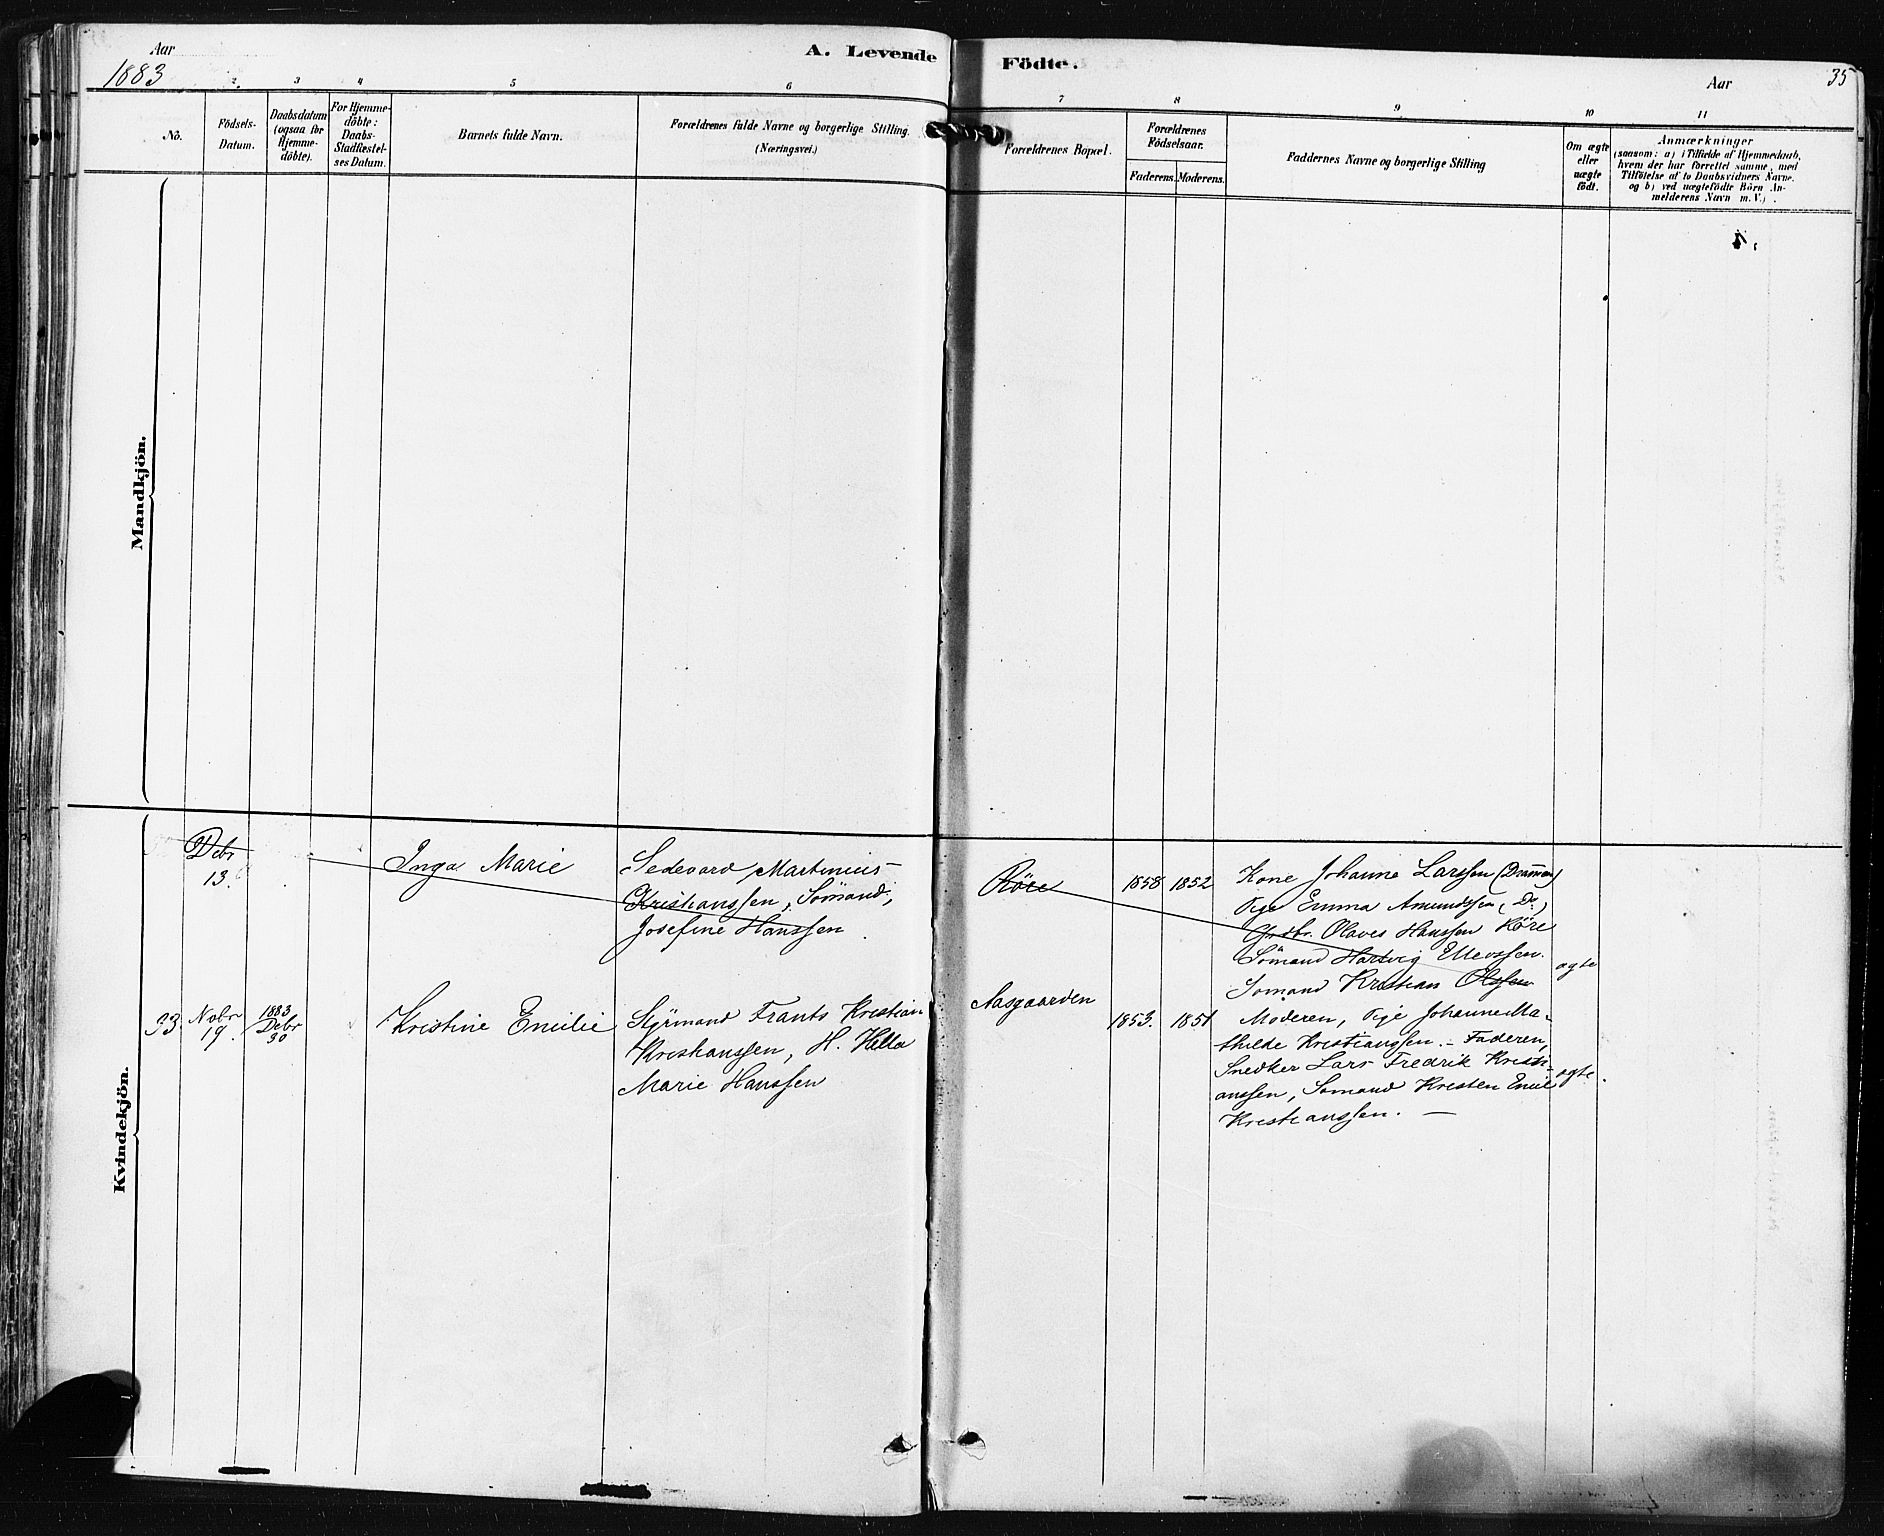 Aar
1883
A. Levende
Födte.
Aar
35
2.
3
4
5
6
7
8
9
10
11
No.
Födsels-
Datum.
Daabsdatum
(ogsaa for
Hjemme-
döbte).
For Hjemme-
döbte:
Daabs-
Stadfæstel-
ses Datum.
Barnets fulde Navn.
Forældrenes fulde Navne og borgerlige Stilling.
(Næringsvei.)
Forældrenes Bopæl.
Forældrenes
Födselsaar.
Faderens.
Moderens.
Faddernes Navne og borgerlige Stilling
Om ægte
eller
uægte
födt.
Anmærkninger
(saasom: a) i Tilfælde af Hjemmedaab,
hvem der har forrettet samme, med
Tilföielse af to Daabsvidners Navne.
og b) ved uægtefödte Börn An-
melderens Navn m. V.) .
Mandkjön.
Kvindekjön.
Debr
13.
Inga Marie
Martinius
Kristianssen, Sömand,
Josefine Hanssen
Röre
1858
1852
Kone Johanne Larssen (Drammen)
Pige Emma Amundssen (Do)
Olaves Hanssen Röre
Sömand Hartvig Ellevssen.
Sömand Kristian Olssen
ægte
33
Nobr
19.
1883
Debr
30
Kristine Emilie
Styrmand Frants Kristian
Kristianssen, H. Hella
Marie Hanssen
Aasgaarden
1853.
1851
Moderen, Pige Johanne Ma-
thilde Kristianssen. – Faderen,
Snedker Lars Fredrik Kristi-
anssen, Sömand Kristen Emil
Kristianssen. –
ægte.